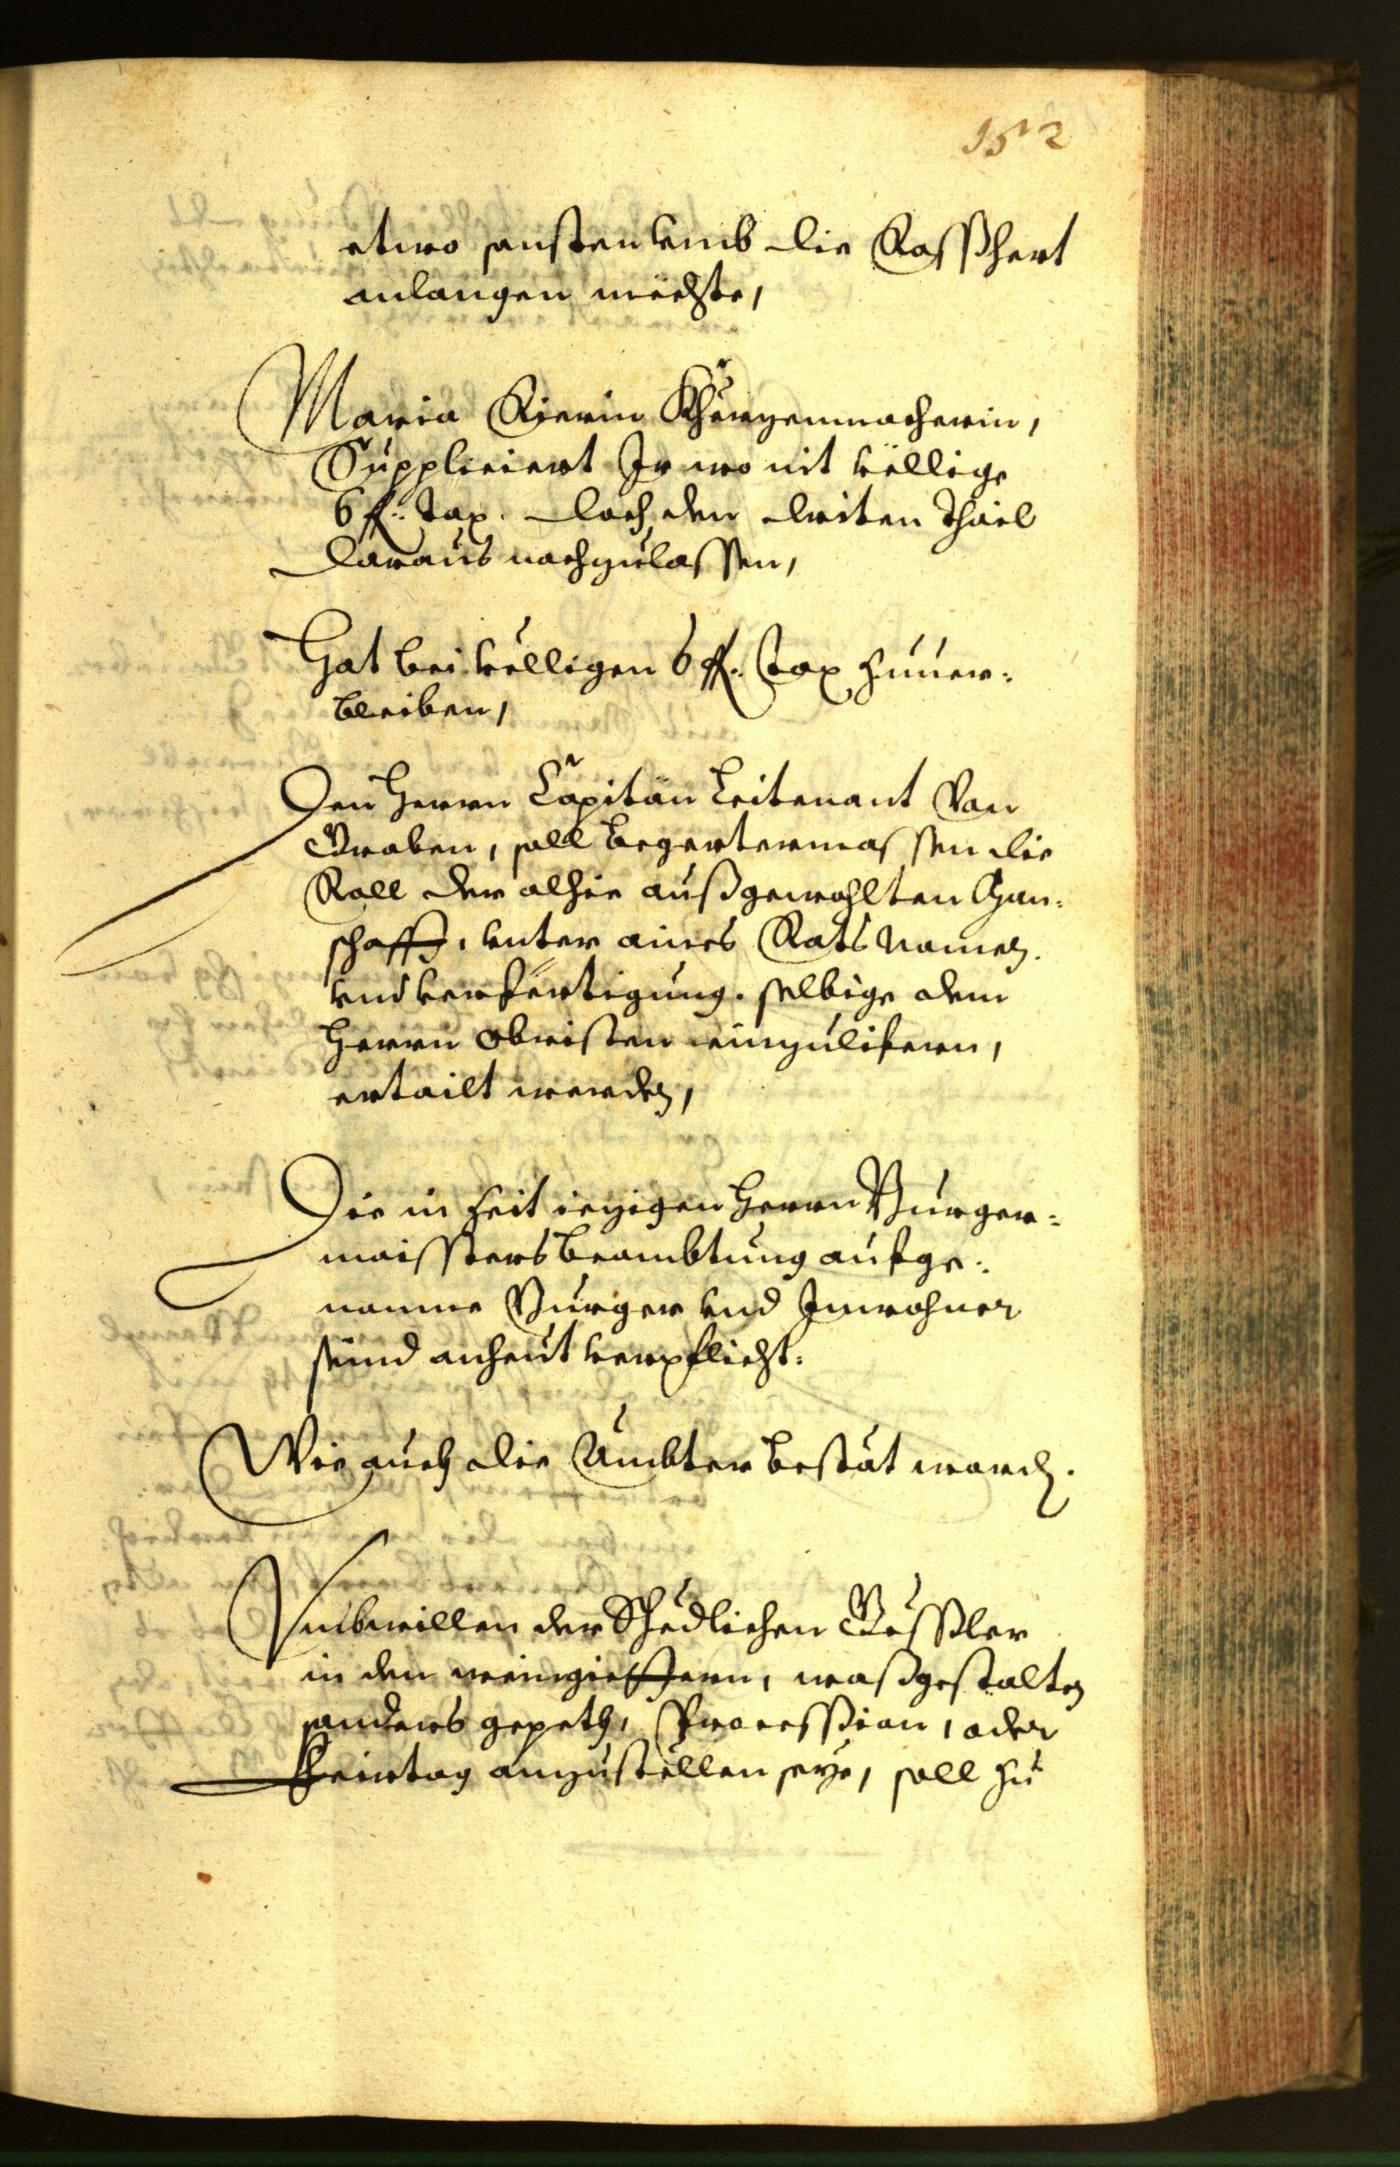 152
etwo sonsten vmb die Rosshert
anlangen mechte,
Maria Rierin Khörzenmacherin,
Suppliciert Ir wo nit völlige
6 f: tax. doch den driten Thail
daraus nachzulassen,
Hat bei völligen 6 f: tax zuuer:
bleiben,
Den Herrn Capitän Leitenant Von
Graben, soll begertermassen die
Roll der alhie außgewohlten
schafft, vnter aines Rats Namen.
vnd verfertigung. selbige dem
Herrn Obristen einzulifern,
ertailt werden,
Die in Zeit iezigen Herrn Burger:
maisters beambtung aufge:
nomne Burger vnd Inwohner
seind anheut verpflicht:
Wie auch die Ämbter bestät worden.
Vmbwillen der Schedlichen Gössler
in den weingiettern, waßgestalten
sonders gepeth, Procession, oder
Feirtag anzustellen seye, soll zu